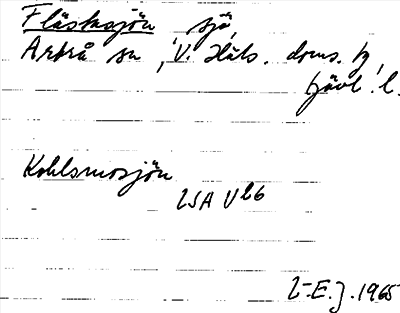 Fläsksjön sjö,
Arbrå sn, V. Häls. doms. tg,
Gävl. l.
Kohlsmosjön
LSA V26
L-E.J. 1965